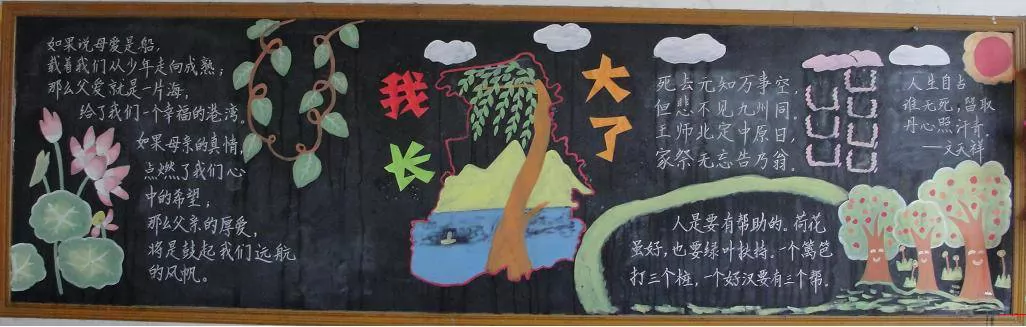 如果说母爱是船，
载着我们从少年走向成熟；
那么父爱就是一片海，
给了我们一个幸福的港湾。
如果母亲的真情，
点燃了我们心
中的希望，
那么父亲的厚爱，
将是鼓起我们远航
的风帆。
我长
大了
死去元知万事空，
但悲不见九州同。
王师北定中原日，
家祭无忘告乃翁。
人生自古
谁无死，留取
丹心照汗青。
——文天祥
人是要有帮助的。荷花
虽好，也要绿叶扶持。一个篱笆
打三个桩，一个好汉要有三个帮。